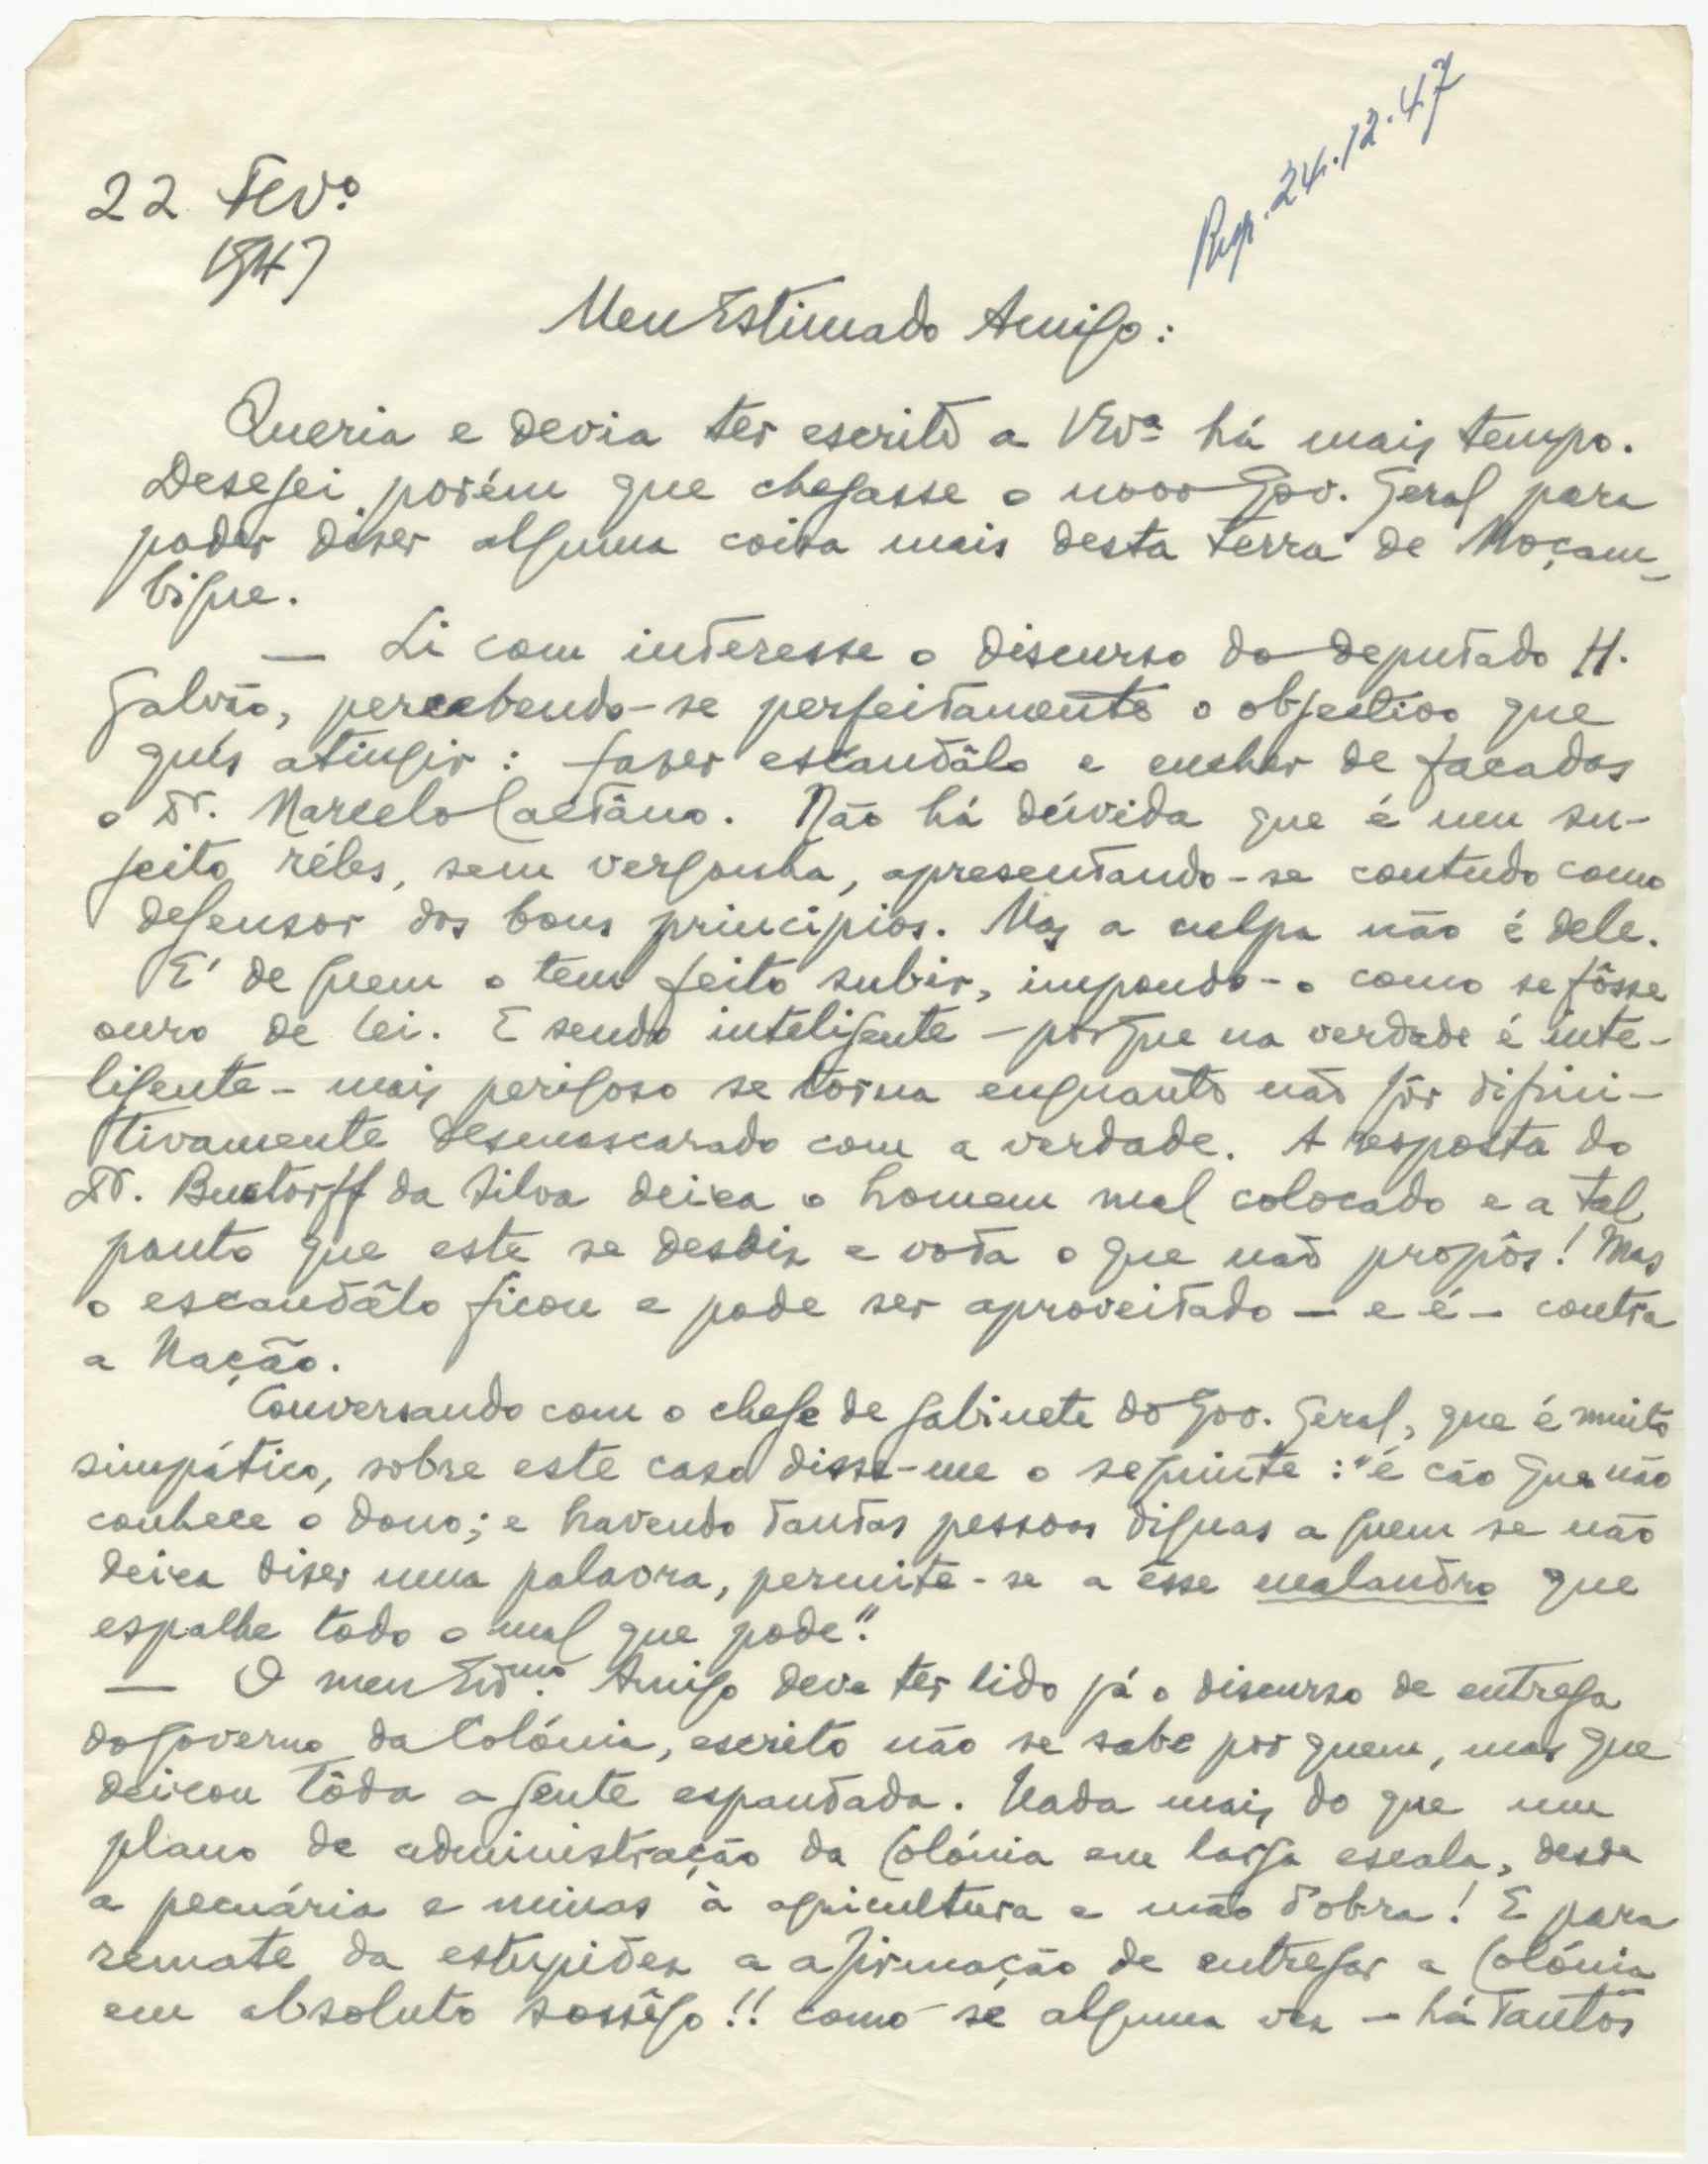 Resp. 24.12.47
22 Fevº
1947
Meu Estimado Amigo:
Queria e devia ter escrito a VExª há mais tempo.
Desejei porém que chegasse o novo Gov. Geral para
poder diser alguma coisa mais desta terra de Moçam-
bique.
— Li com interesse o discurso do deputado H.
Galvão, percebendo-se perfeitamente o objectivo que
quís atingir: faser escandâlo e encher de facadas
o Dr. Marcelo Caetâno. Não há dúvida que é um su-
jeito réles, sem vergonha, apresentando-se contudo como
defensor dos bons principios. Mas a culpa não é dele.
E' de quem o tem feito subir, impondo-o como se fôsse
ouro de lei. E sendo inteligente - porque na verdade é inte-
ligente - mais perigoso se torna enquanto não fôr difini-
tivamente desmascarado com a verdade. A resposta do
Dr. Bustorff da Silva deixa o homem mal colocado e a tal
ponto que este se desdiz e vota o que não propôs! Mas
o escandâlo ficou e pode ser aproveitado — e é — contra
a Nação.
Conversando com o chefe de gabinete do Gov. Geral, que é muito
simpático, sobre este caso disse-me o seguinte: "é cão que não
conhece o dono; e havendo tantas pessoas dignas a quem se não
deixa diser uma palavra, permite-se a êsse malandro que
espalhe todo o mal que pode".
— O meu Exmo. Amigo deve ter lido já o discurso de entrega
do governo da Colónia, escrito não se sabe por quem, mas que
deixou tôda a gente espantada. Nada mais do que um
plano de administração da Colónia em larga escala, desde
a pecuária e minas à agricultura e mão d'obra! E para
remate da estupidez a afirmação de entregar a Colónia
em absoluto sossêgo!! como se alguma vez — há tantos